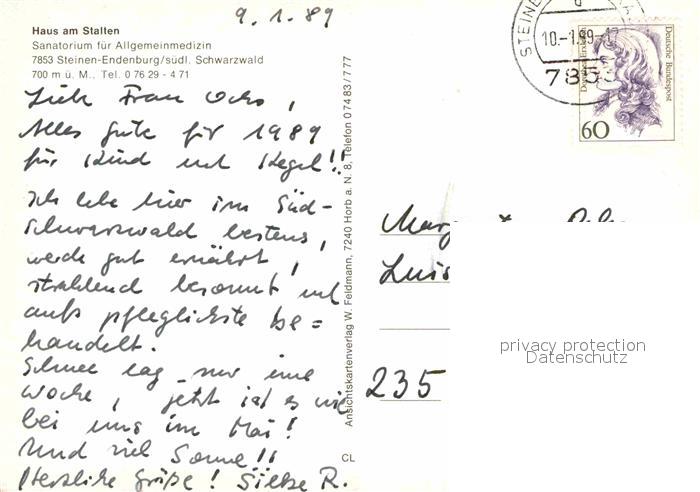 9.1.89
Haus am Stalten
Sanatorium für Allgemeinmedizin
7853 Steinen-Endenburg/südl. Schwarzwald
700 m ü. M., Tel. 0 76 29 - 4 71
Liebe Frau Ochs,
Alles Gute für 1989
für Kind und Kegel!!
Ich lebe hier im Süd-
schwarzwald bestens,
werde gut ernährt,
strahlend besonnt und
aufs pfleglichste be=
handelt.
Schnee lag nur eine
Woche, jetzt ist es wie
bei uns im Mai!
Und viel Sonne!!
Herzliche Grüße! Silke R.
Ansichtskartenverlag W. Feldmann, 7240 Horb a. N. 8, Telefon 0 74 83 / 7 77
CL
STEINE
10.-1.89-17
7853
Deutsche Bundespost
60
Marg
Luis
235
privacy protection
Datenschutz